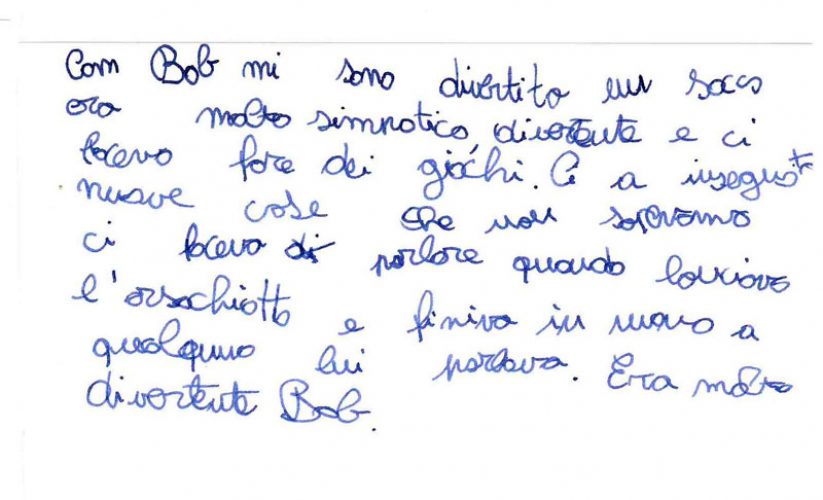 Com Bob mi sono divertito un sacco
era molto simpatico, divertente e ci
faceva fare dei giochi. Ci a insegnato
nuove cose che non sapevamo
ci faceva di parlare quando lanciava
l'orsachiotto e finiva in mano a
qualquno lui parlava. Era molto
divertente Bob.